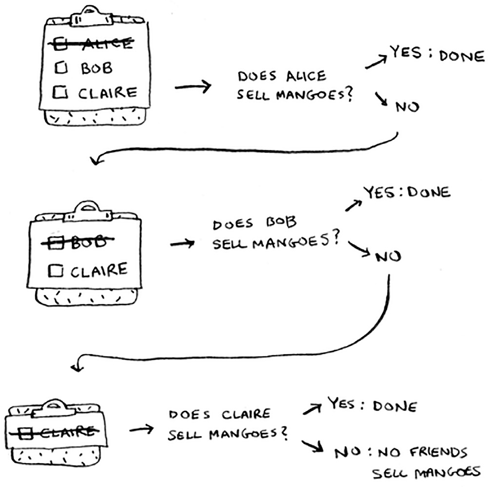 ALICE
BOB
CLAIRE
DOES ALICE
SELL MANGOES?
YES: DONE
NO
BOB
CLAIRE
DOES BOB
SELL MANGOES?
YES: DONE
NO
CLAIRE
DOES CLAIRE
SELL MANGOES?
YES: DONE
NO: NO FRIENDS
SELL MANGOES